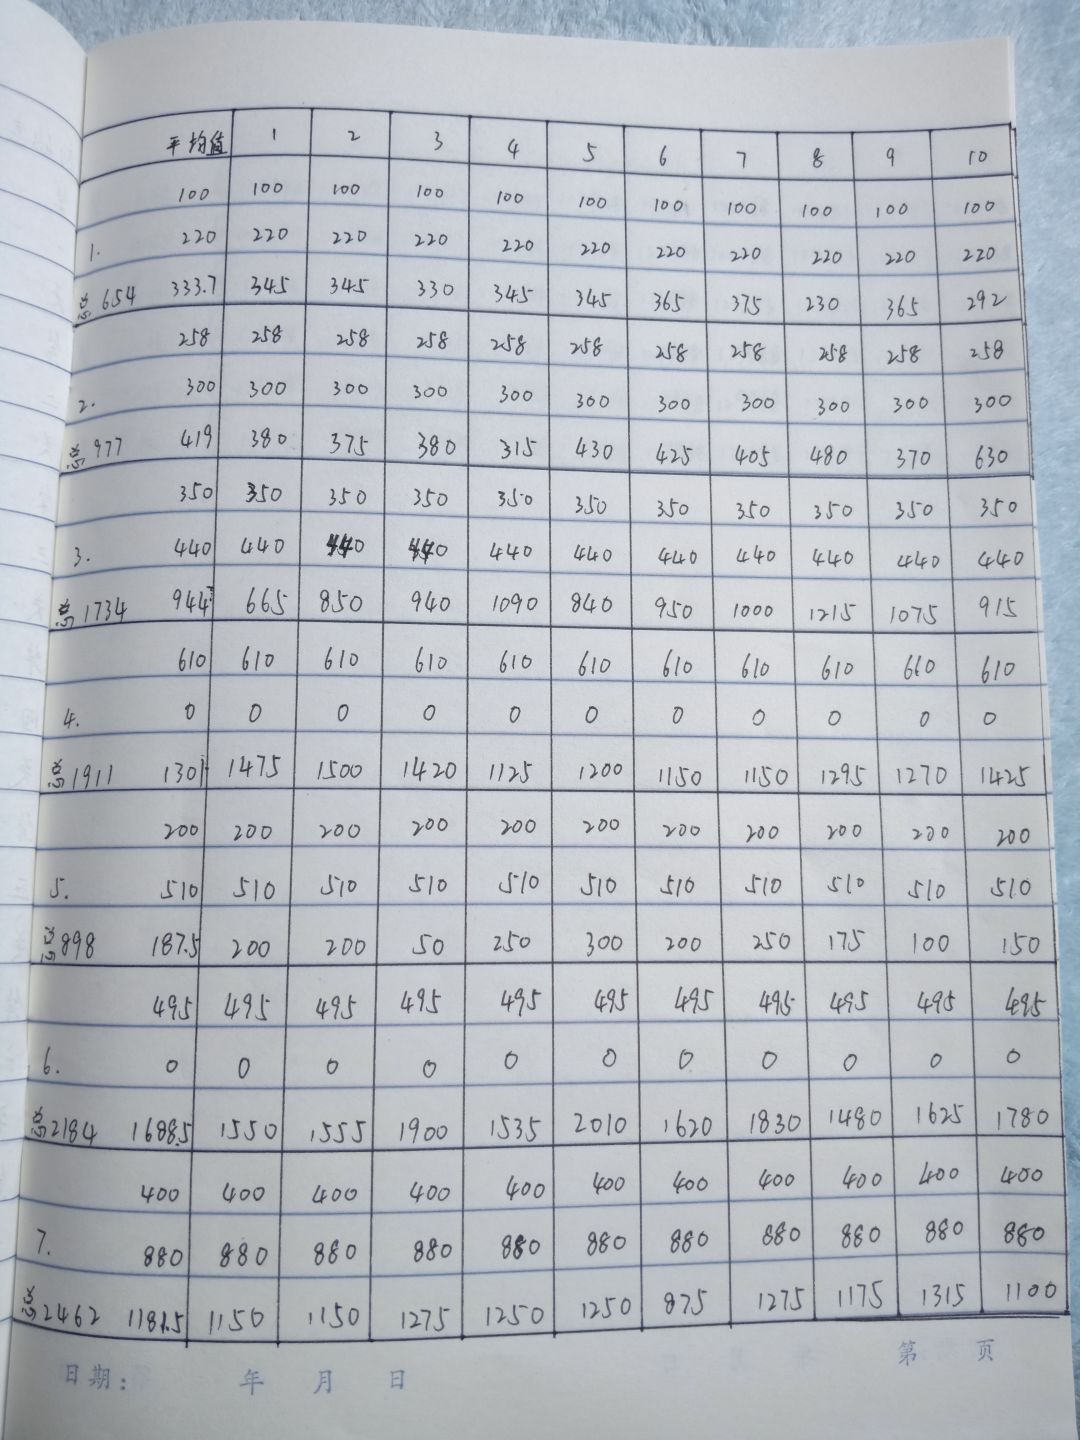 平均值 1 2 3 4 5 6 7 8 9 10
100 100 100 100 100 100 100 100 100 100 100
1. 220 220 220 220 220 220 220 220 220 220 220
总 654 333.7 345 345 330 345 345 365 375 230 365 292
258 258 258 258 258 258 258 258 258 258 258
2. 300 300 300 300 300 300 300 300 300 300 300
总 977 419 380 375 380 315 430 425 405 480 370 630
350 350 350 350 350 350 350 350 350 350 350
3. 440 440 440 440 440 440 440 440 440 440 440
总 1734 944 665 850 940 1090 840 950 1000 1215 1075 915
610 610 610 610 610 610 610 610 610 610 610
4. 0 0 0 0 0 0 0 0 0 0 0
总 1911 1301 1475 1500 1420 1125 1200 1150 1150 1295 1270 1425
200 200 200 200 200 200 200 200 200 200 200
5. 510 510 510 510 510 510 510 510 510 510 510
总 898 187.5 200 200 50 250 300 200 250 175 100 150
495 495 495 495 495 495 495 495 495 495 495
6. 0 0 0 0 0 0 0 0 0 0 0
总 2184 1688.5 1550 1555 1900 1535 2010 1620 1830 1480 1625 1780
400 400 400 400 400 400 400 400 400 400 400
7. 880 880 880 880 880 880 880 880 880 880 880
总 2462 1181.5 1150 1150 1275 1250 1250 875 1275 1175 1315 1100
第 页
日期: 年 月 日